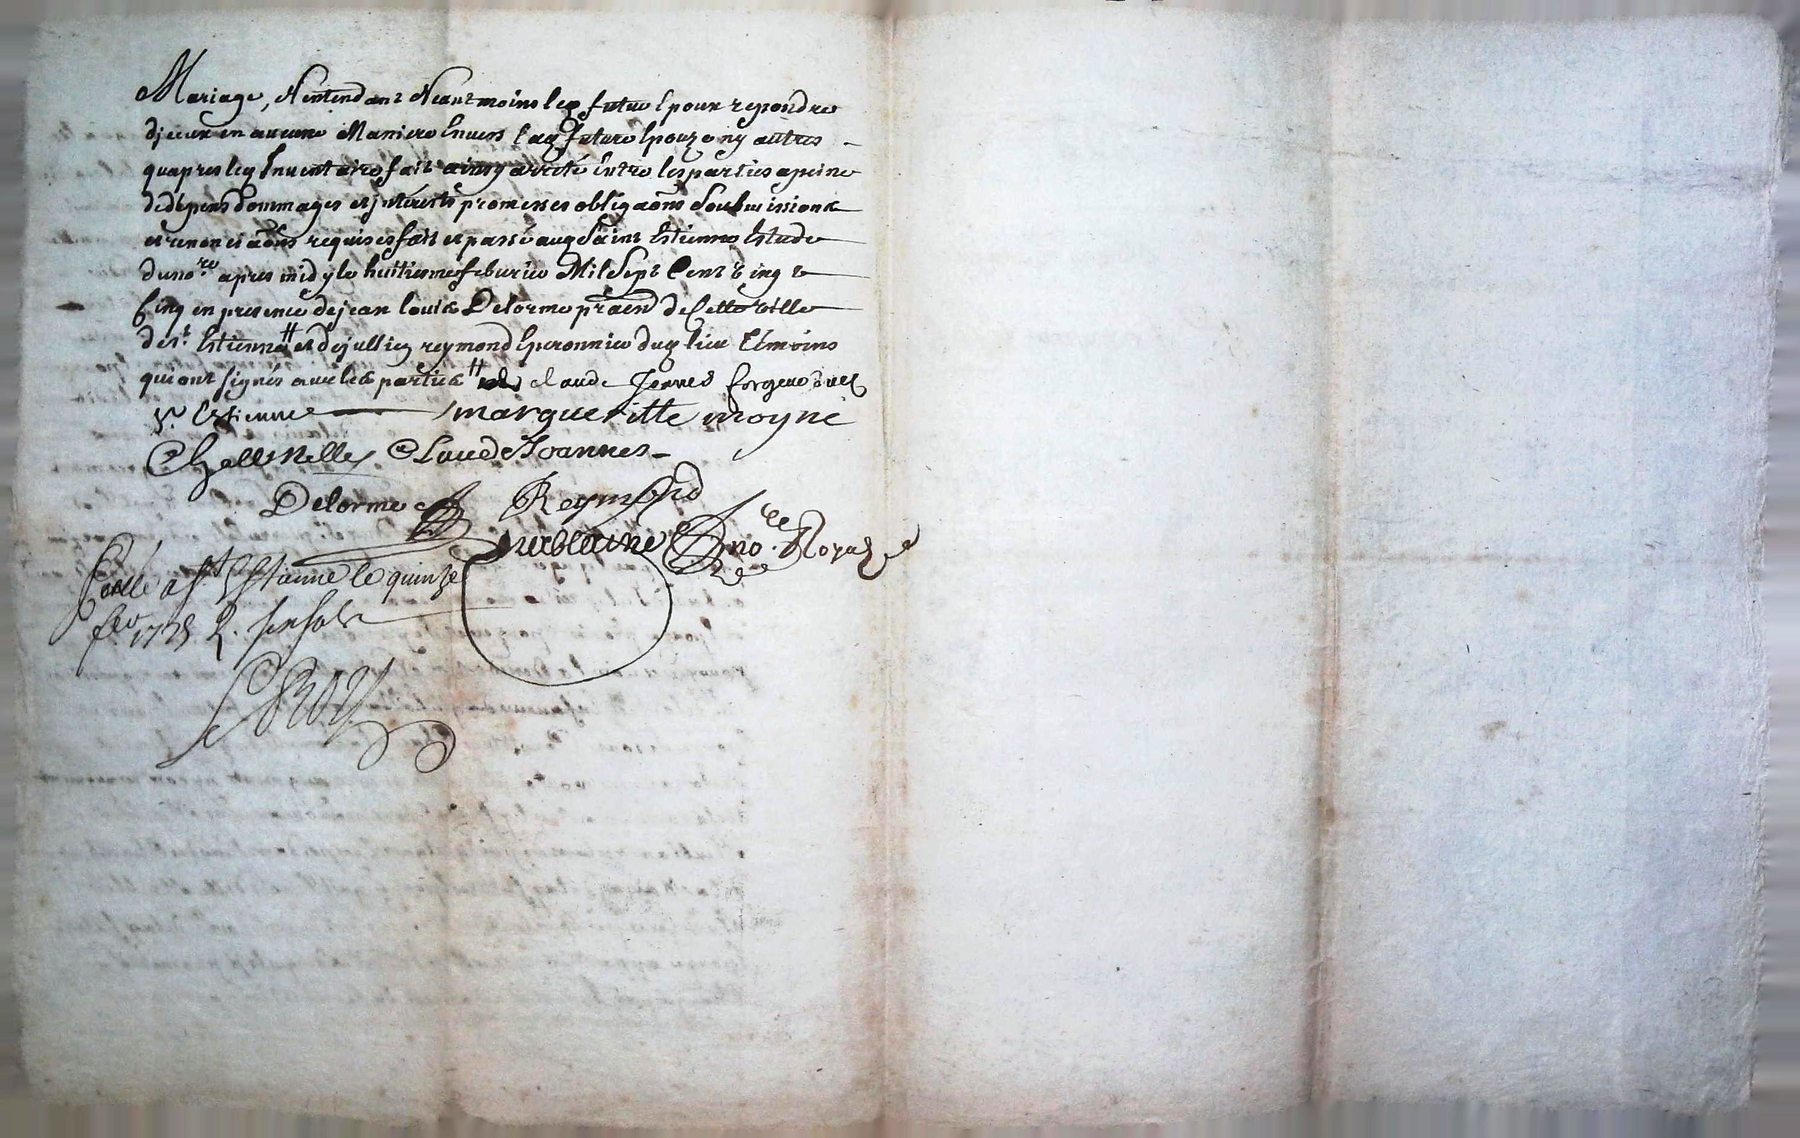 Mariage, N'entendant Neantmoins led. futur Epoux repondre
diceux en aucune Maniere Envers lad. future Epouze ny autres
quapres led. Inventaire fait ainsy arreté Entre les parties a peine
de dépens Dommages et jnterests promesses obligaõns Soubmissions
et renonciaõns requises fait et passé aud. Saint Estienne Estude
du no.re apres midy le huitiesme feburier Mil Sept Cent Vingt
Cinq en presence de jean louis Delorme pratn de Cette Ville
de St. Estienne # et de jullien reymond Eperonnier dud. lieu Témoins
qui ont signés avec les parties # claude Joannes forgeur
St. Estienne margueritte moyne
Claude Joannes
Delorme Reymond
no.re Royal
Scellé a St Estienne le quinze
fevr 1725